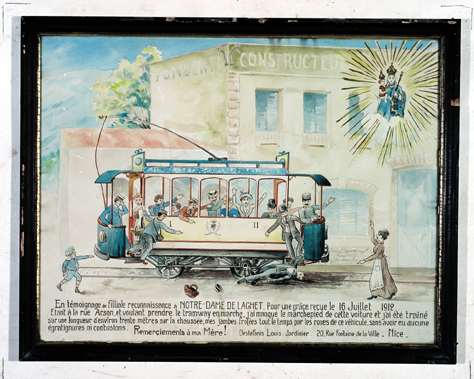 CONSTRUCTEU
I II
En témoignage de filliale reconnaissance à NOTRE-DAME DE LAGHET. Pour une grâce reçue le 16 Juillet 1912
Etant à la rue Arson, et voulant prendre le tramway en marche, j'ai manqué le marchepied de cette voiture et j'ai été traîné
sur une longueur d'environ trente mètres sur la chaussée, mes jambes frolées tout le temps par les roues de ce véhicule, sans avoir eu aucune
égratignures ni contusions. Remerciements à ma Mère! Destefanis Louis. Jardinier 20, Rue Fontaine de la Ville. Nice.